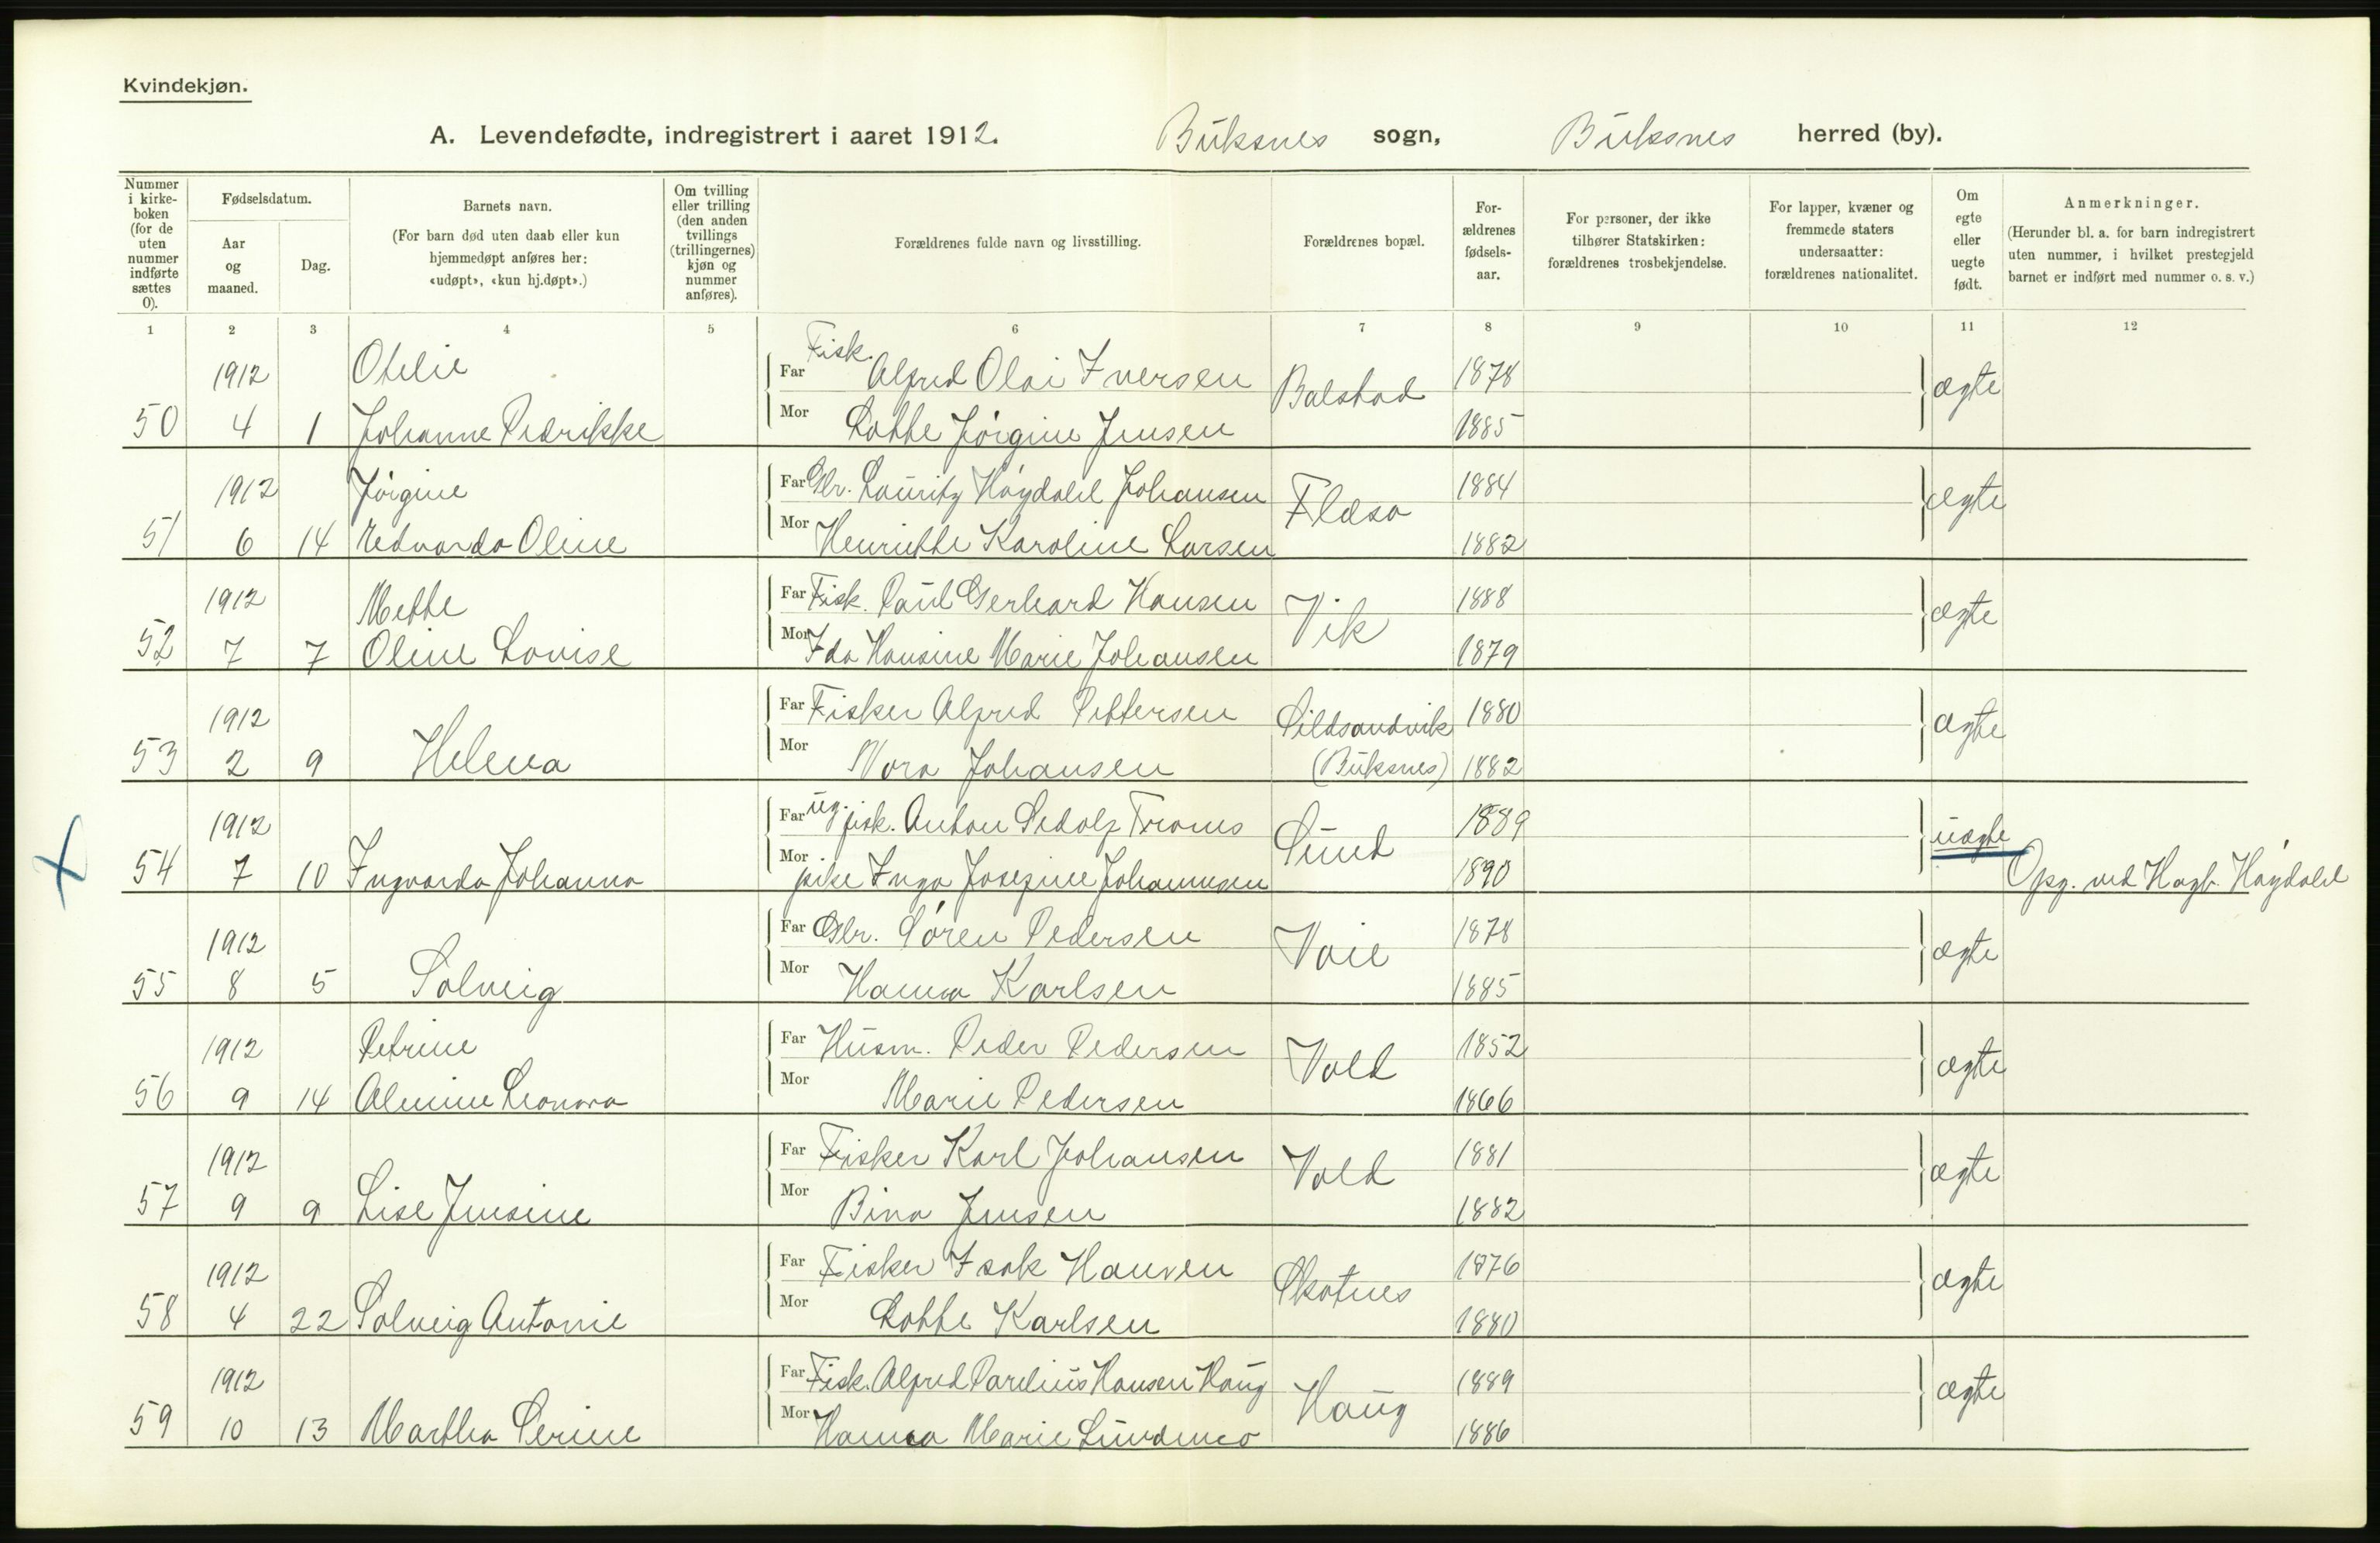 Kvindekjøn.
A. Levendefødte, indregistrert i aaret 1912. Buksnes sogn, Buksnes herred (by).
Nummer i kirke-boken (for de uten nummer indførte sættes 0).
Fødselsdatum.
Aar og maaned.
Dag.
Barnets navn.
(For barn død uten daab eller kun hjemmedøpt anføres her: «udøpt», «kun hj.døpt».)
Om tvilling eller trilling (den anden tvillings (trillingernes) kjøn og nummer anføres).
Forældrenes fulde navn og livsstilling.
Forældrenes bopæl.
For-ældrenes fødsels-aar.
For personer, der ikke tilhører Statskirken: forældrenes trosbekjendelse.
For lapper, kvæner og fremmede staters undersaatter: forældrenes nationalitet.
Om egte eller uegte født.
Anmerkninger.
(Herunder bl. a. for barn indregistrert uten nummer, i hvilket prestegjeld barnet er indført med nummer o. s. v.)
1 2 3 4 5 6 7 8 9 10 11 12
1912 Otelie Far Fisk. Alfred Olai Iversen Balstad 1878 ægte
50 4 1 Johanne Pedrikke Mor Lotte Jørgine Jensen 1885
1912 Jørgine Far Gbr. Lauritz Høydahl Johansen Flæsa 1884 ægte
51 6 14 Edvarda Oline Mor Henriette Karoline Larsen 1882
1912 Mette Far Fisk. Paul Gerhard Hansen Vik 1888 ægte
52 7 7 Oline Lovise Mor Ida Hansine Marie Johansen 1879
1912 Far Fisker Alfred Pettersen Sildsandvik 1880 ægte
53 2 9 Helena Mor Nora Johansen (Buksnes) 1882
1912 Far ug. fisk. Anton Troms Sund 1889 uægte
54 7 10 Ingvarda Johanna Mor pike Inga Josefine Johannesen 1890 Opg. ved Høydahl
1912 Far Gbr. Søren Pedersen Voie 1878 ægte
55 8 5 Solveig Mor Hanna Karlsen 1885
1912 Petrine Far Husm. Peder Pedersen Vold 1852 ægte
56 9 14 Almine Leonora Mor Marie Pedersen 1866
1912 Far Fisker Karl Johansen Vold 1881 ægte
57 9 9 Lise Jensine Mor Bina Jensen 1882
1912 Far Fisker Isak Hansen Skotnes 1876 ægte
58 4 22 Solveig Antonie Mor Lotte Karlsen 1880
1912 Far Fisk. Alfred Parelius Hansen Haug Haug 1889 ægte
59 10 13 Martha Serine Mor Hanna Marie 1886